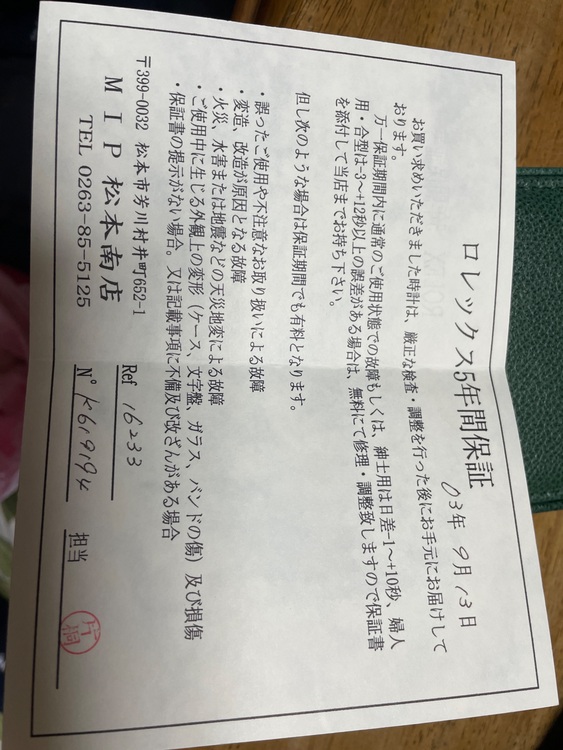 ロレックス5年間保証
03年 9月13日
お買い求めいただきました時計は、厳正な検査・調整を行った後にお手元にお届けして
おります。
万一保証期間内に通常のご使用状態での故障もしくは、紳士用は日差-1〜+10秒、婦人
用・合型は-3〜+12秒以上の誤差がある場合は、無料にて修理・調整致しますので保証書
を添付して当店までお持ち下さい。
但し次のような場合は保証期間でも有料となります。
・誤ったご使用や不注意なお取り扱いによる故障
・変造、改造が原因となる故障
・火災、水害または地震などの天災地変による故障
・ご使用中に生じる外観上の変形（ケース、文字盤、ガラス、バンドの傷）及び損傷
・保証書の提示がない場合。又は記載事項に不備及び改ざんがある場合
〒399-0032 松本市芳川村井町652-1
MIP松本南店
TEL 0263-85-5125
Ref 16233
N° K619194
担当